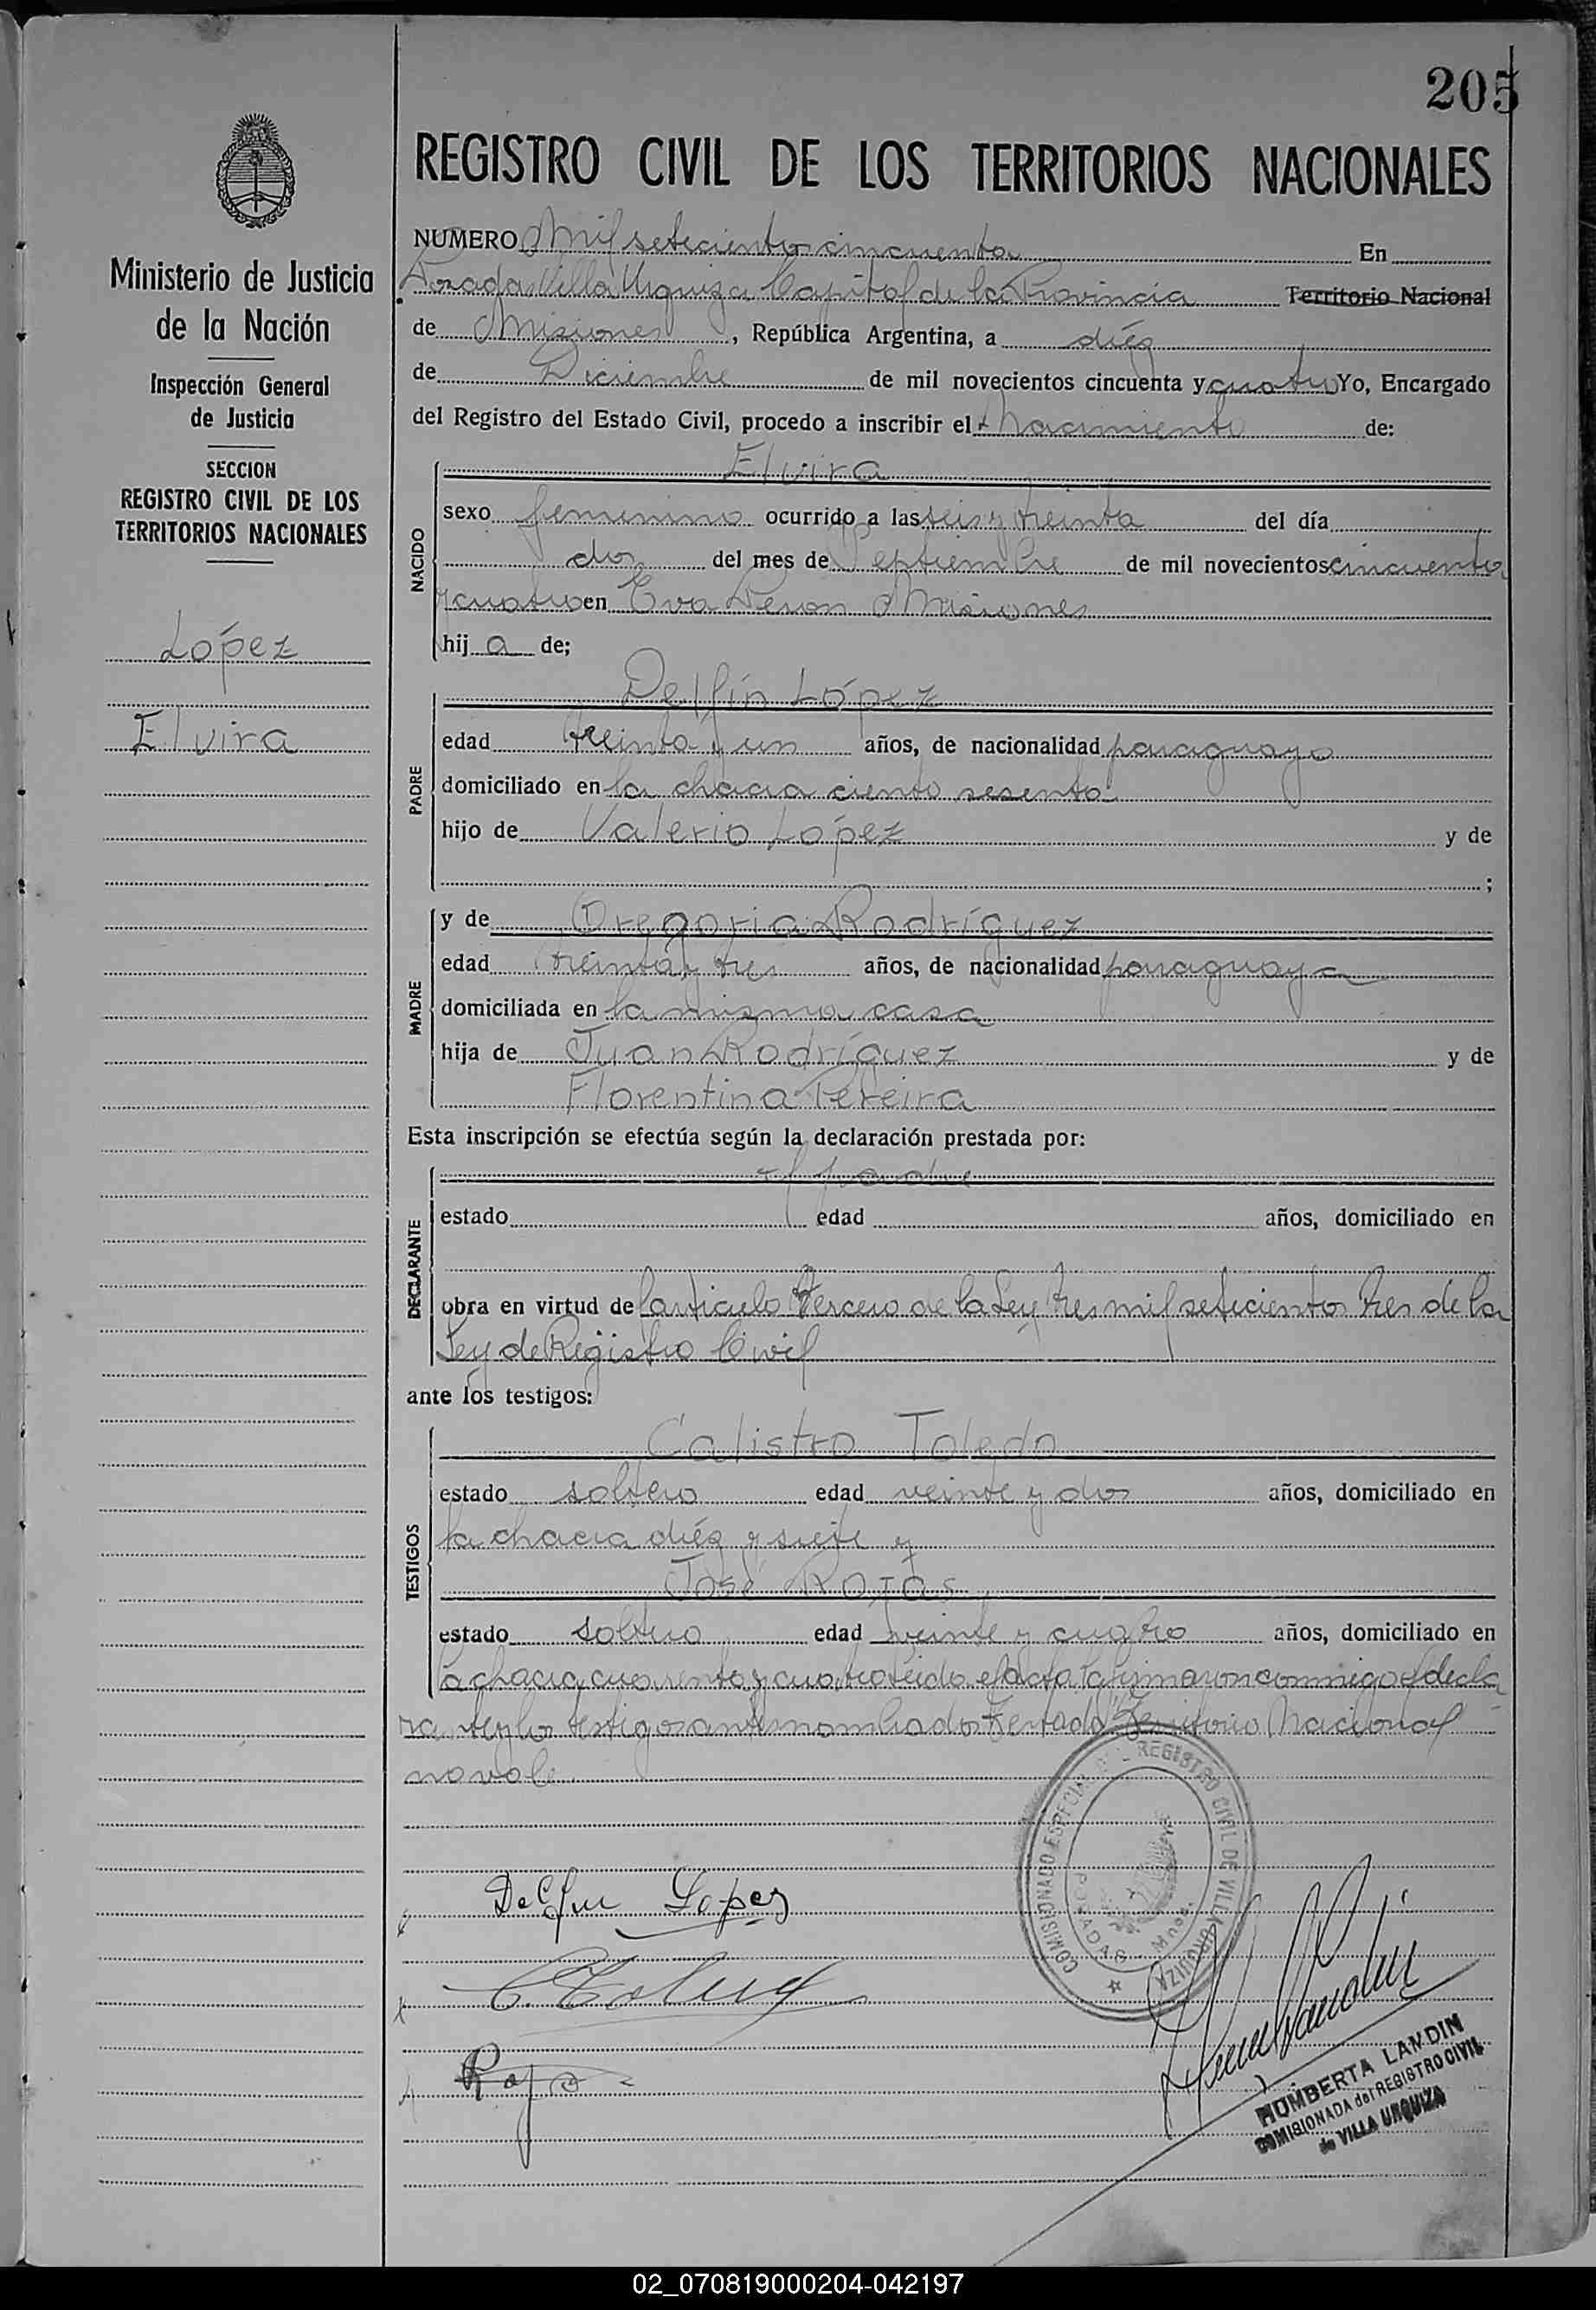 205
REGISTRO CIVIL DE LOS TERRITORIOS NACIONALES
Ministerio de Justicia
de la Nación
Inspección General
de Justicia
SECCION
REGISTRO CIVIL DE LOS
TERRITORIOS NACIONALES
López
Elvira
NUMERO Mil setecientos cincuenta En
Posadas Villa Urquiza Capital de la Provincia Territorio Nacional
de Misiones, República Argentina, a diéz
de Diciembre de mil novecientos cincuenta y cuatro Yo, Encargado
del Registro del Estado Civil, procedo a inscribir el nacimiento de:
NACIDO
Elvira
sexo femenino ocurrido a las seis y treinta del día
dos del mes de Septiembre de mil novecientos cincuenta
y cuatro en Eva Peron Misiones
hij a de;
PADRE
Delfín López
edad treinta y un años, de nacionalidad paraguayo
domiciliado en la chacra ciento sesenta
hijo de Valerio López y de
;
MADRE
y de Gregoria Rodríguez
edad treinta y tres años, de nacionalidad paraguaya
domiciliada en la misma casa
hija de Juan Rodríguez y de
Florentina Pereira
Esta inscripción se efectúa según la declaración prestada por:
DECLARANTE
el padre
estado edad años, domiciliado en
obra en virtud del articulo tercero de la Ley tres mil setecientos tres de la
Ley de Registro Civil
ante los testigos:
TESTIGOS
Calistro Toledo
estado soltero edad veinte y dos años, domiciliado en
la chacra diéz y siete y
José Rojas
estado soltero edad veinte y cuatro años, domiciliado en
la chacra cuarenta y cuatro Leido el acta la firmaron conmigo el decla
rante y los testigos antes nombrados Testado Territorio Nacional
no vale
COMISIONADO ESPECIAL DEL REGISTRO CIVIL DE VILLA URQUIZA
POSADAS - Mnes.
Delfin Lopez
Rojas
HUMBERTA LANDIN
COMISIONADA del REGISTRO CIVIL
de VILLA URQUIZA
02_070819000204-042197